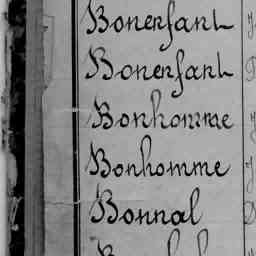 Bonenfant J
Bonenfant
Bonhomme J
Bonhomme J
Bonnal